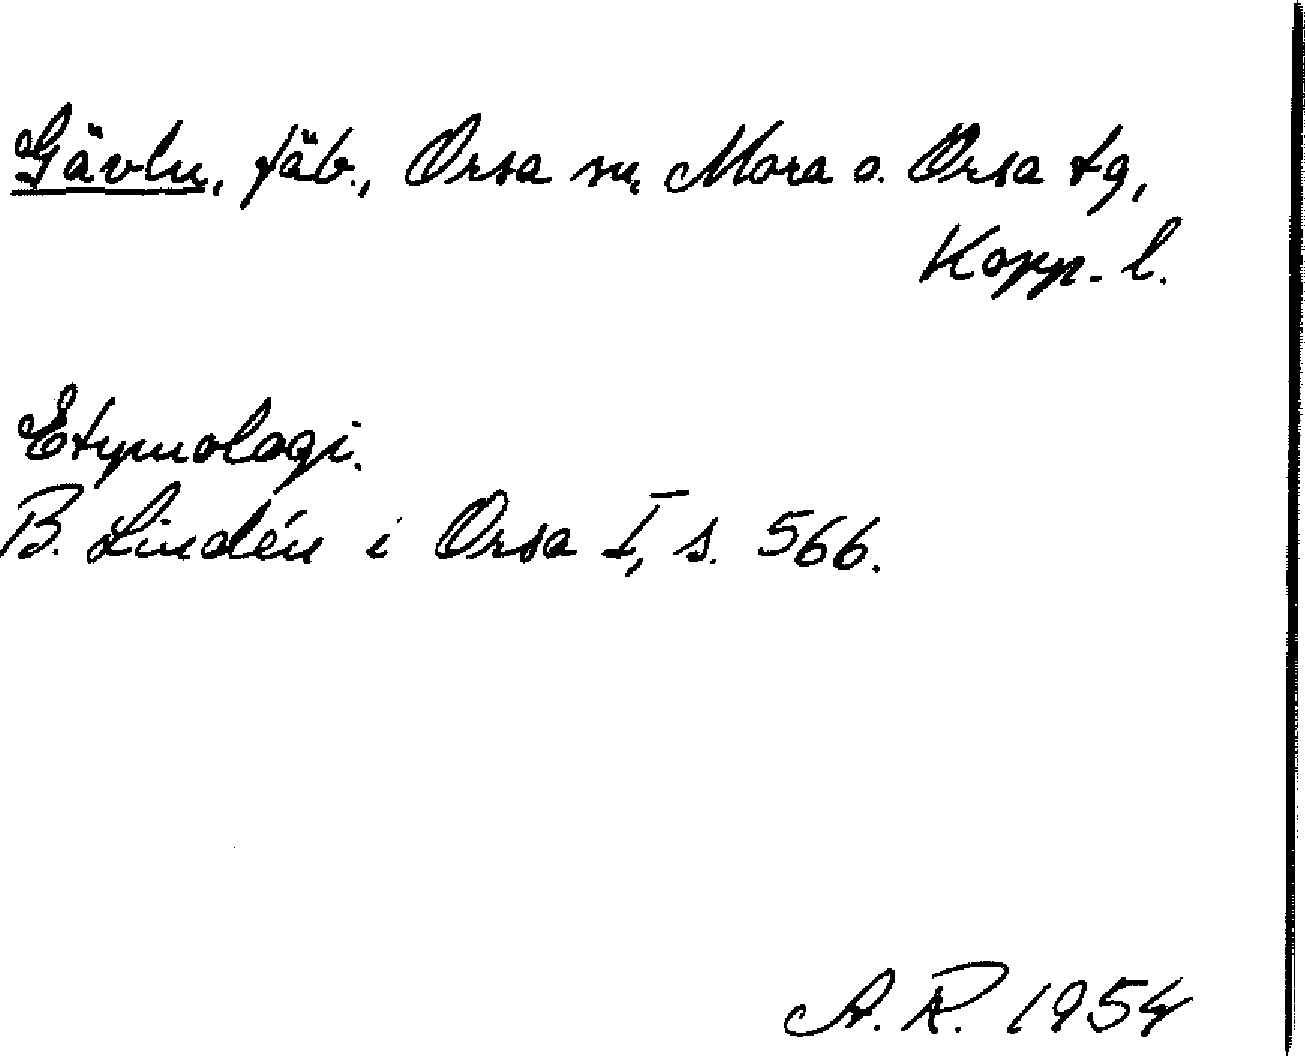 Gävlu, fäb., Orsa sn, Mora o. Orsa tg,
Kopp. l.
Etymologi.
B. Lindén i Orsa I, s. 566.
A. R. 1954